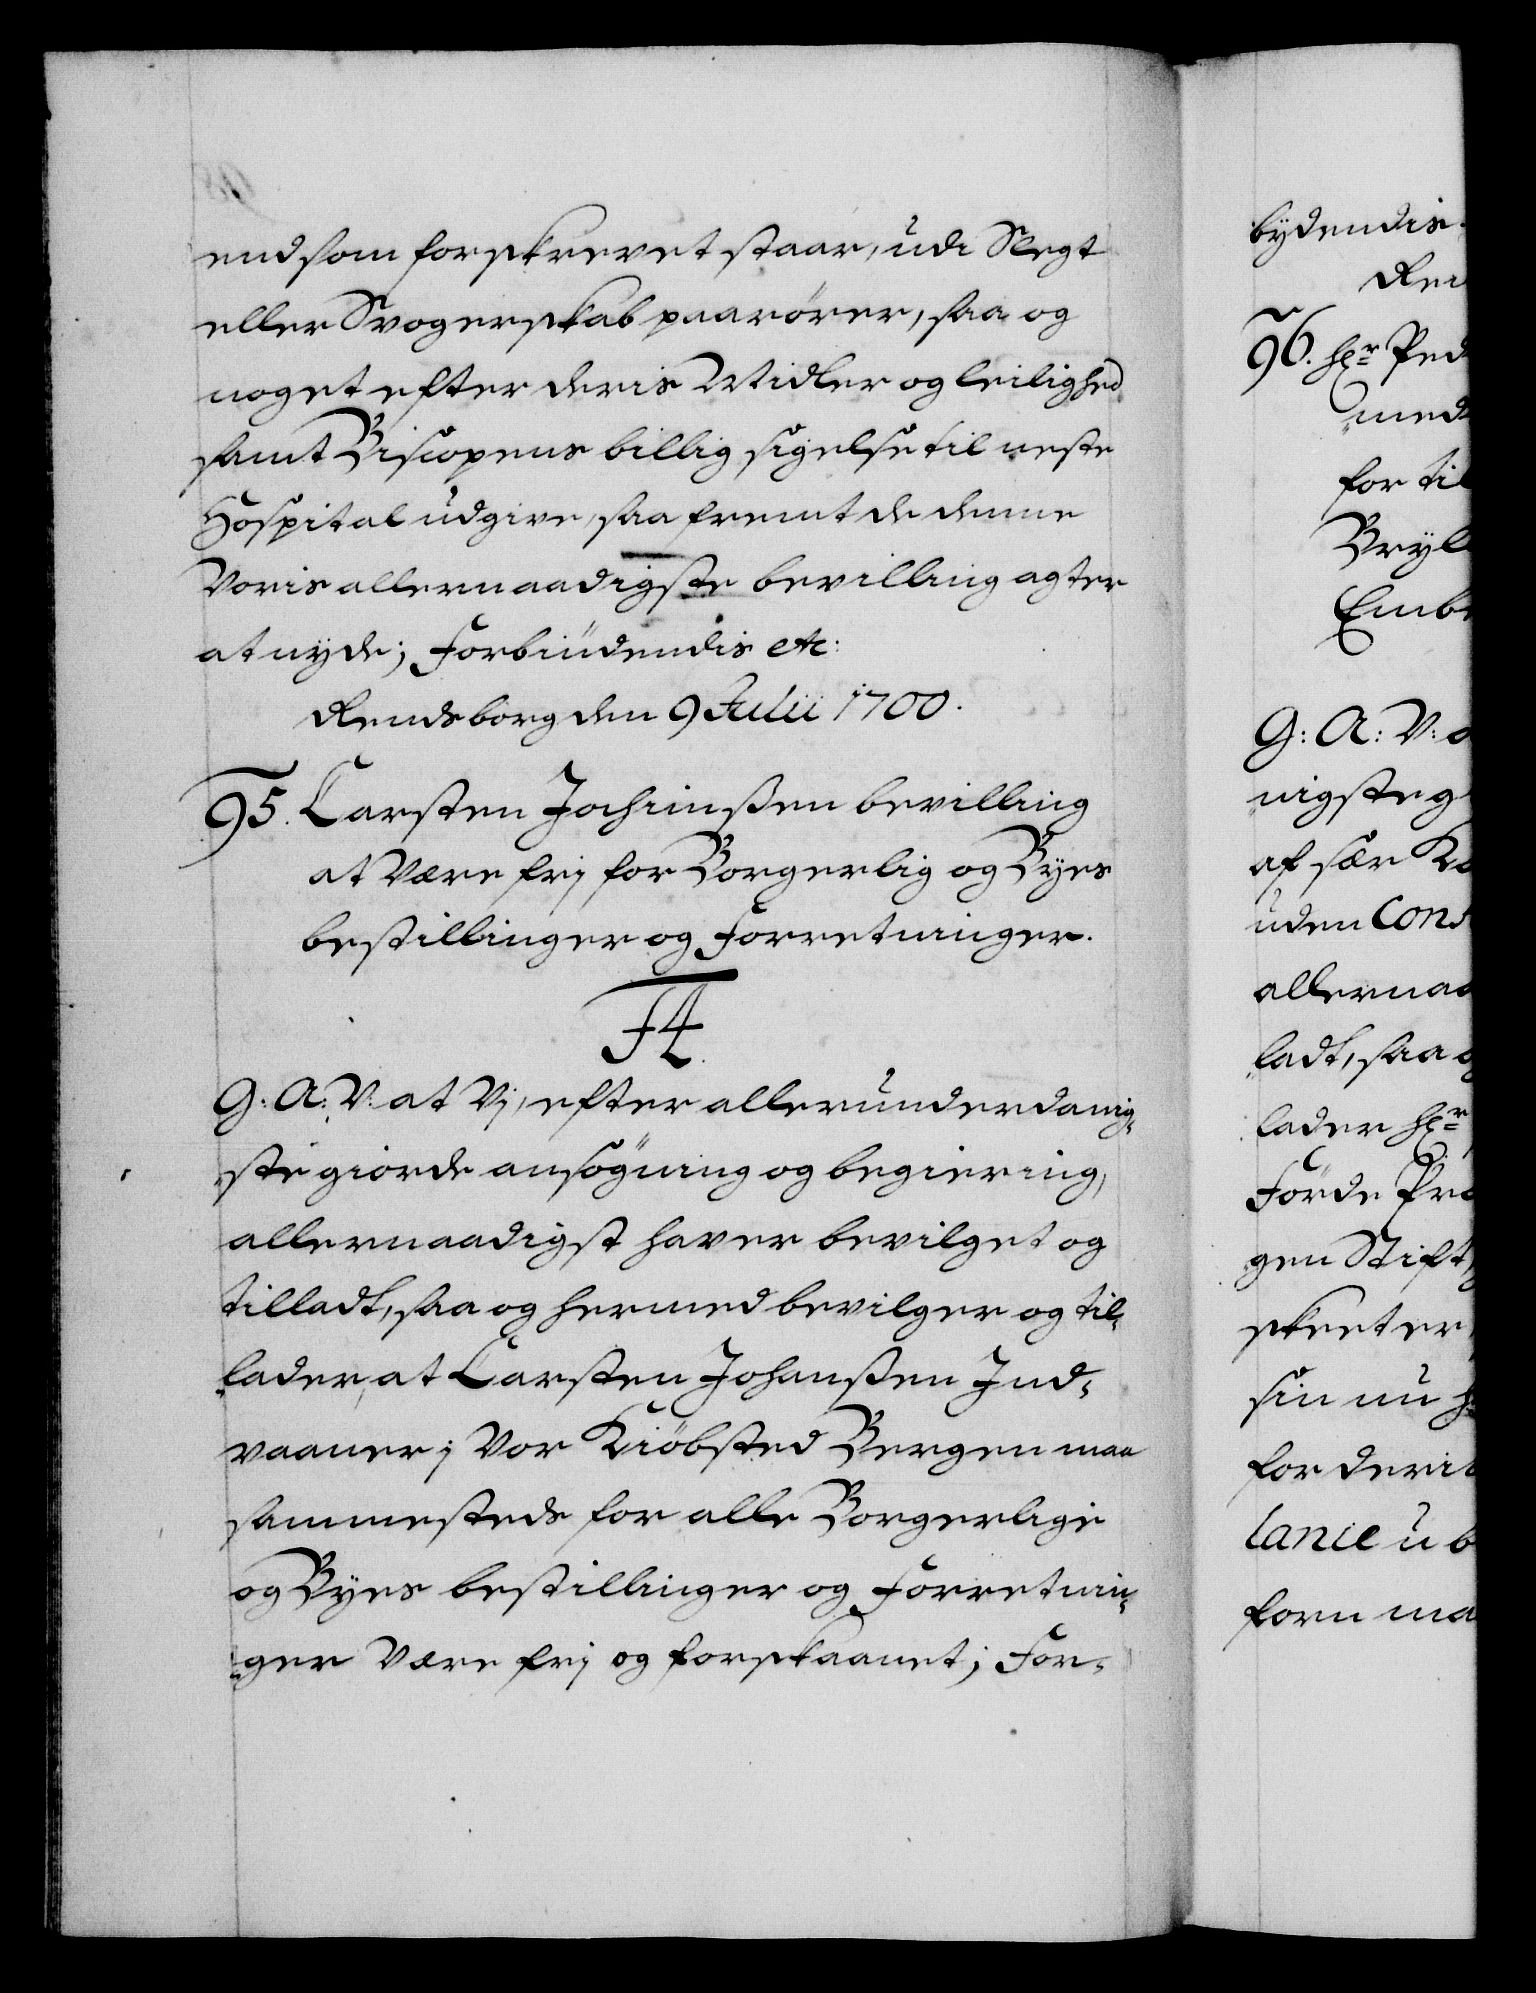 endsom forskrevet staar, udi Slegt
eller Svogerskab paarörer, saa og
noget efter deris Midler og leilighed
samt Biscopens billig sigelse til neste
Hospital udgive, saa fremt de denne
Voris allernaadigste bevilling agter
at nyde; Forbiüdendis etc:
Rendsborg den 9 Julii 1700.
95. Carsten Jochimßen bevilling
at være frj for Borgerlig og Byes
bestillinger og Forretninger.
F4.
G: A: V: at Vj, efter allerunderdanig-
ste giorde ansögning og begiering,
allernaadigst haver bevilget og
tilladt, saa og hermed bevilger og til-
lader, at Carsten Johanßen Ind-
vaaner j Vor Kiöbsted Bergen maa
sammesteds for alle Borgerlige
og Byes bestillinger og Forretnin-
ger være frj og forskaanet; For-
bydendis
96. Hr Ped
med
for til
Bryl
Emb
G: A: V:
nigste g
af sær
uden Cons
allernaa
ladt, saa
lader Hr
Förde Pr
gen Stift
skeet er
sin nu
for deris
lanie ub
forn ma